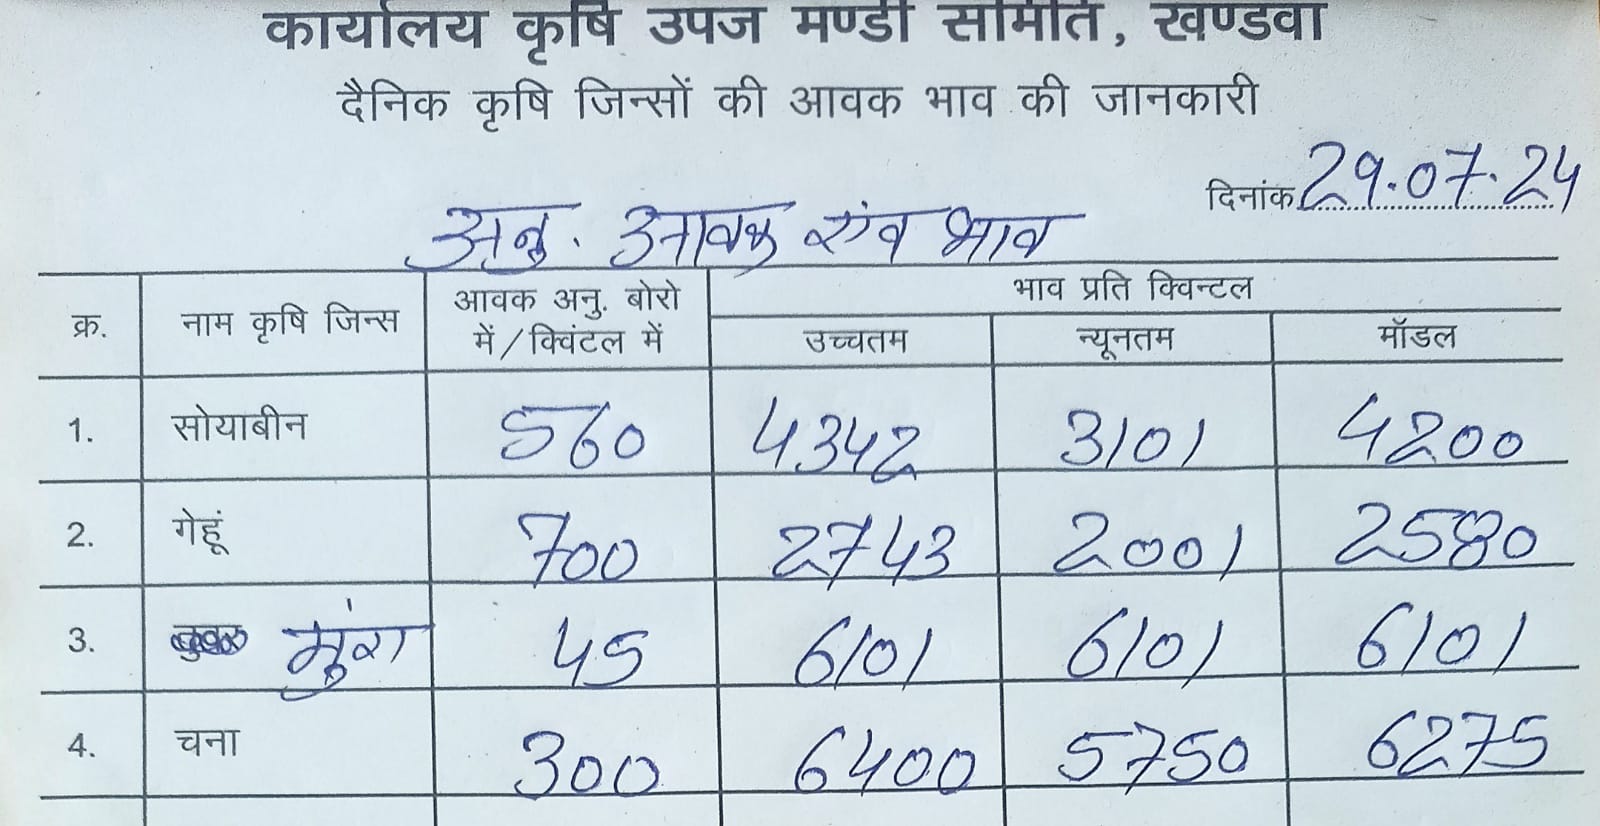 कार्यालय कृषि उपज मण्डी समिति, खण्डवा
दैनिक कृषि जिन्सों की आवक भाव की जानकारी
दिनांक 29.07.24
अनु. आवक एंव भाव
क्र. नाम कृषि जिन्स आवक अनु. बोरो में/क्विंटल में भाव प्रति क्विन्टल
उच्चतम न्यूनतम मॉडल
1. सोयाबीन 560 4342 3101 4200
2. गेहूं 700 2743 2001 2580
3. मुंग 45 6101 6101 6101
4. चना 300 6400 5750 6275